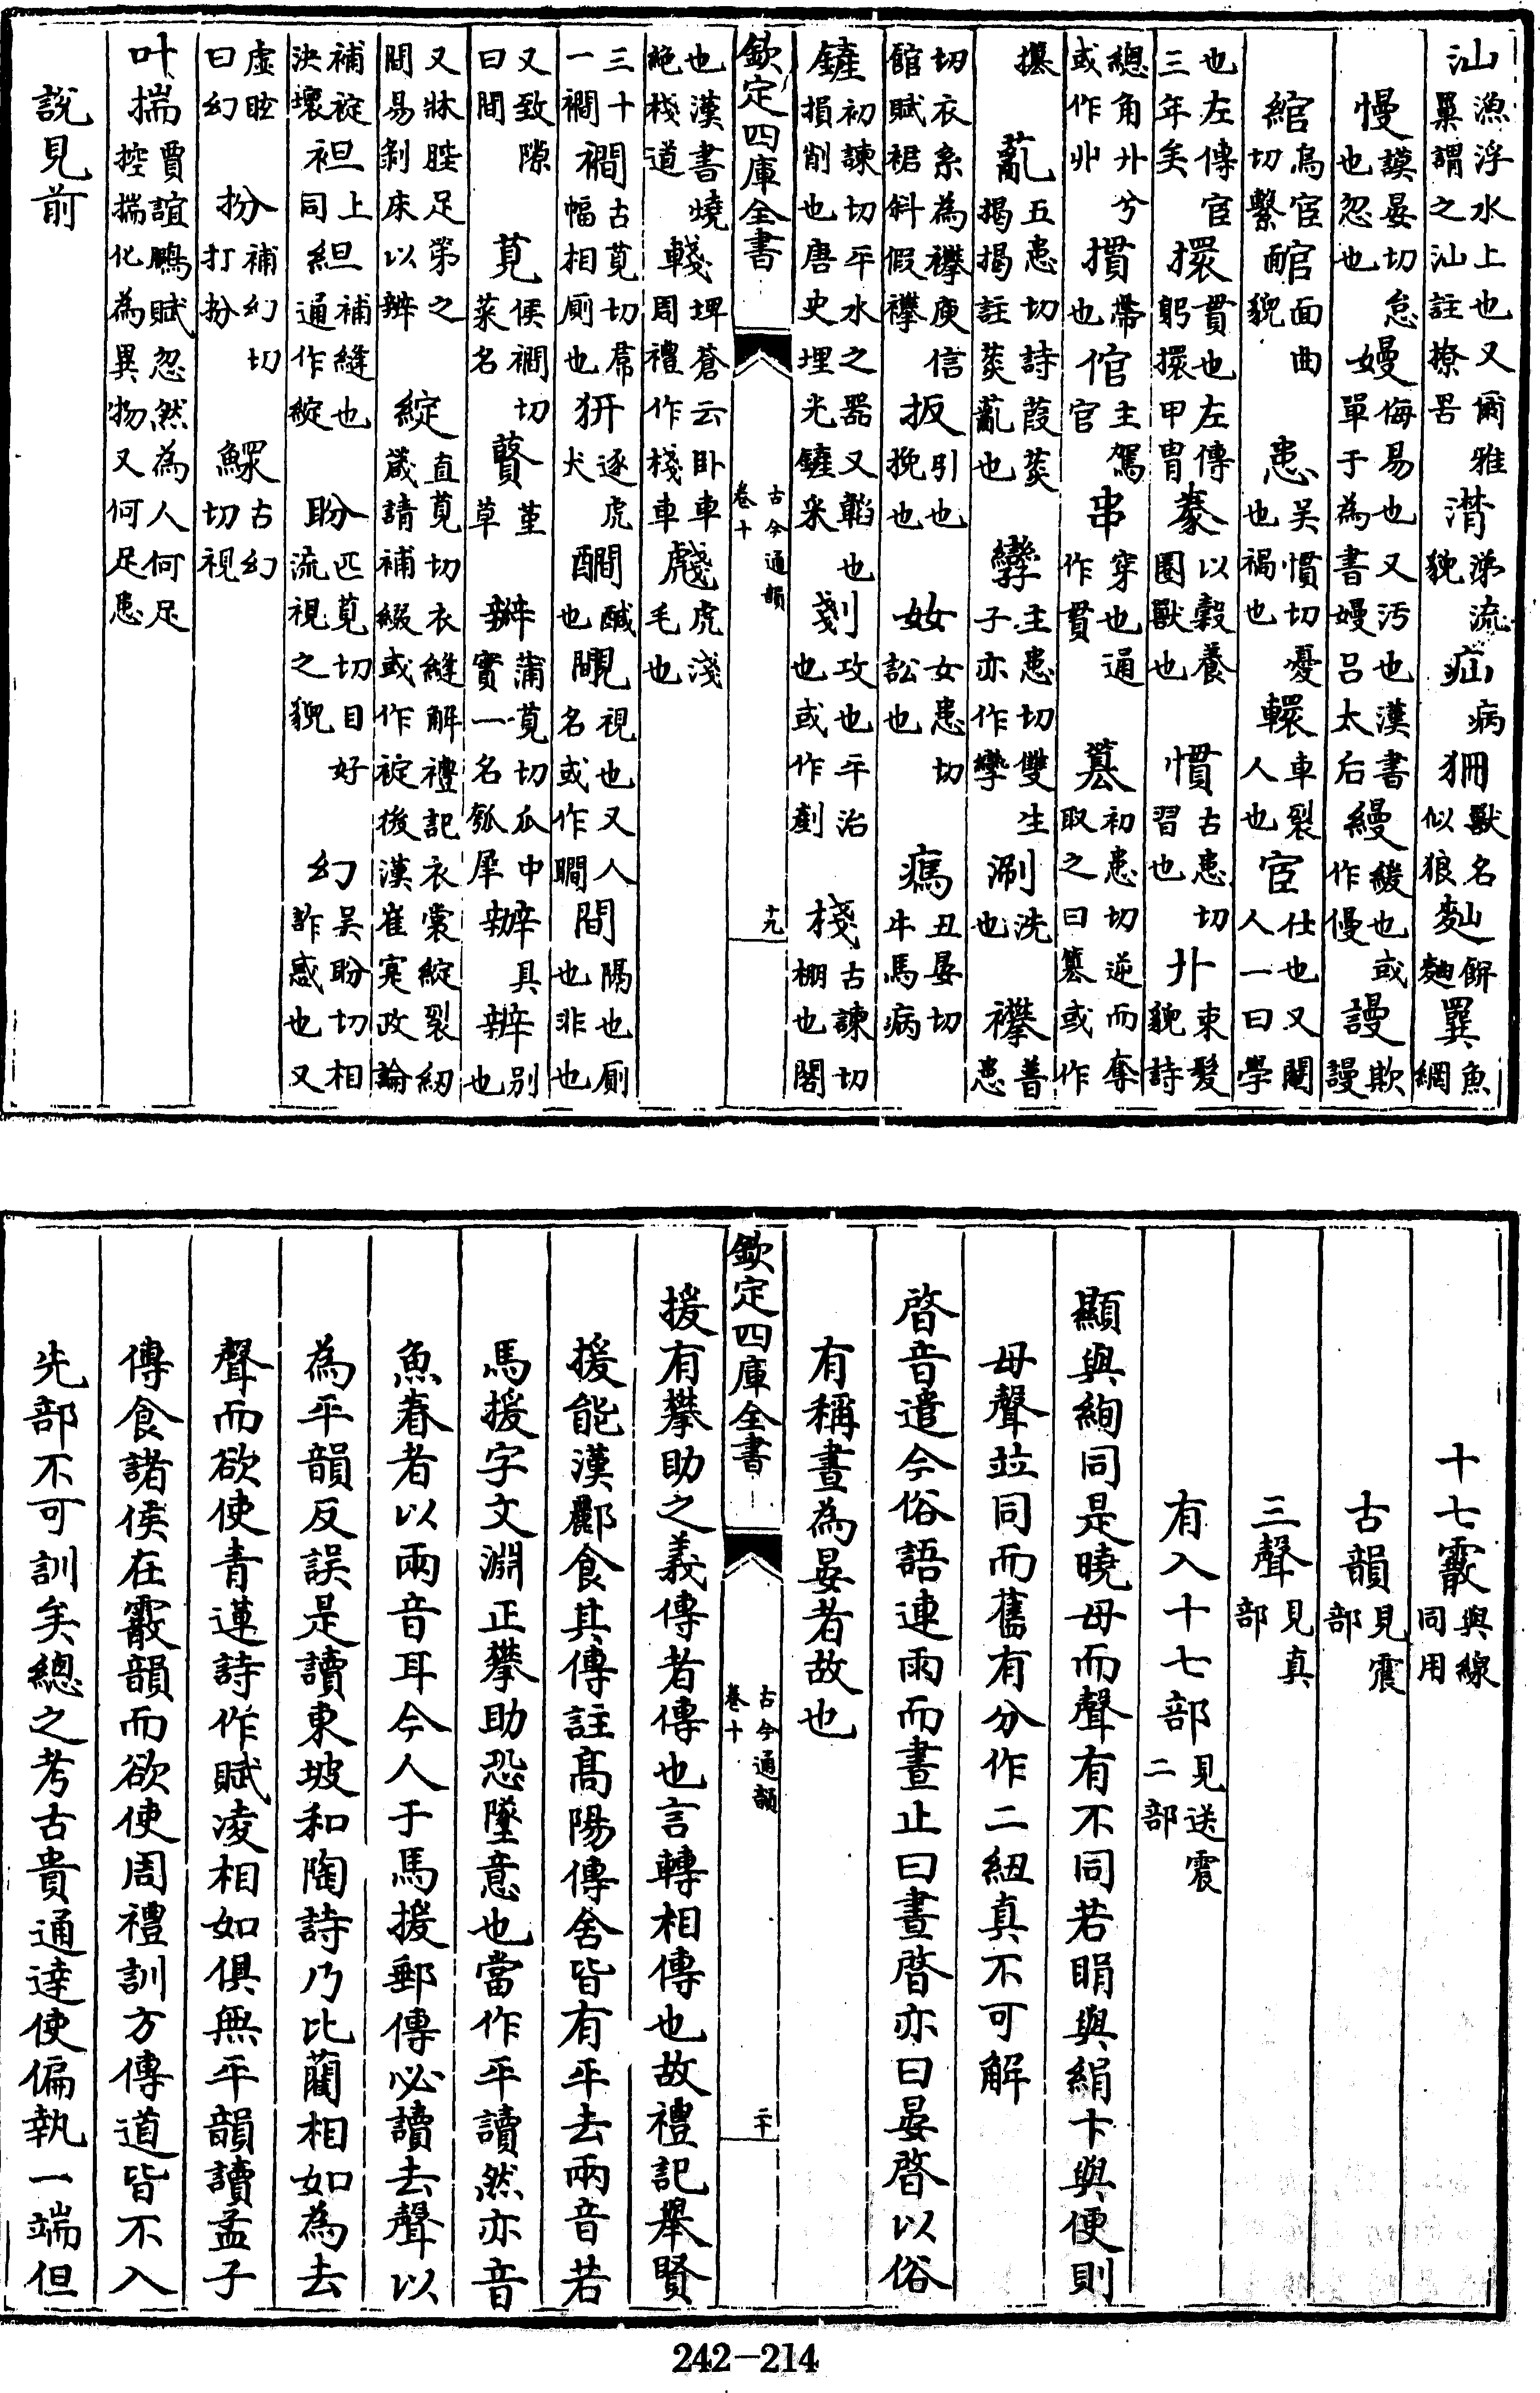 汕漁浮水上也又爾雅罺謂之汕註撩罟潸涕流貌疝病狦獸名似狼䴮餅麯䍻魚網
慢謨晏切怠也忽也嫚侮易也又汚也漢書單于為書嫚呂太后縵緩也或作僈謾欺謾
綰烏宦切繫䩊面曲貌患吳慣切憂也禍也轘車裂人也宦仕也又閹人一曰學
也左傳宦三年矣擐貫也左傳躬擐甲冑豢以穀養圈獸也慣古患切習也丱束髮貌詩
總角丱兮或作丱摜帶也倌主駕官串穿也通作貫篡初患切逆而奪取之曰簒或作
㩲薍五患切詩葭菼揭揭註菼薍也孿主患切雙生子亦作孿涮洗也襻普患
切衣系為襻庾信館賦裙斜假襻扳引也挽也奻女患切訟也𤸱丑晏切牛馬病
鏟初諫切平水之器又韜也損削也唐史埋光鏟采剗攻也平治也或作剷棧古諫切棚也閣
也漢書燒絶棧道輚埤蒼云卧車周禮作棧車虥虎淺毛也
三十一襇襇古莧切帬幅相厠也豜逐虎犬醐醎也覸視也又人名或作瞷間隔也厠也非也
又致隙曰間莧侯襇切菜名藖堇草瓣蒲莧切瓜中實一名瓠犀辦具辧别也
又牀䏶足笫之間易剥床以辨綻直莧切衣縫解禮記衣裳綻裂紉箴請補綴或作䘺後漢崔寔政論
補䘺決壞袒上同組補縫也通作綻盼匹莧切目好流視之貌幻吳盼切相詐惑也又
虛眩曰幻扮補幻切打扮鰥古幻切視
叶揣賈誼鵩賦忽然為人何足控揣化為異物又何足患
說見前
欽定四庫全書
古今通韻卷十
十九
十七霰與線同用
古韻見震部
三聲見真部
有入十七部見送震二部
顯與絢同是曉母而聲有不同若睊與絹卞與便則
母聲竝同而舊有分作二紐真不可解
啓音遣今俗語連雨而晝止曰晝啓亦曰晏啓以俗
有稱晝為晏者故也
援有攀助之義傳者傳也言轉相傳也故禮記舉賢
欽定四庫全書
古今通韻卷十
二十
援能漢酈食其傳註髙陽傳舍皆有平去兩音若
馬援字文淵正攀助恐墜意也當作平讀然亦音
魚眷者以兩音耳今人于馬援郵傳必讀去聲以
為平韻反誤是讀東坡和陶詩乃比藺相如為去
聲而欲使青蓮詩作賦凌相如俱無平韻讀孟子
傳食諸侯在霰韻而欲使周禮訓方傳道皆不入
先部不可訓矣總之考古貴通達使偏執一端但
242-214